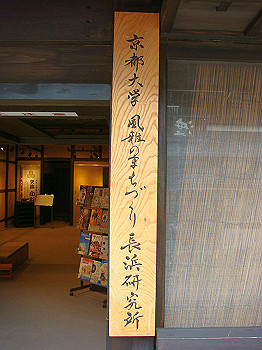 京都大学 風雅のまちづくり 長浜研究所